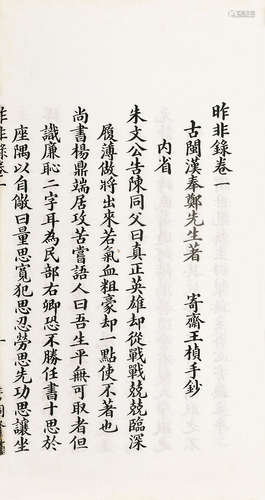 昨非錄卷一
古閩漢奉鄭先生著　寄齋王楨手鈔
內省
朱文公告陳同父曰真正英雄却從戰戰兢兢臨深
履薄做將出來若氣血粗豪却一點使不著也
尚書楊鼎端居攻苦嘗語人曰吾生平無可取者但
識廉恥二字耳為民部右卿恐不勝任書十思於
座隅以自儆曰量思寬犯思忍勞思先功思讓坐
昨非錄卷一　一